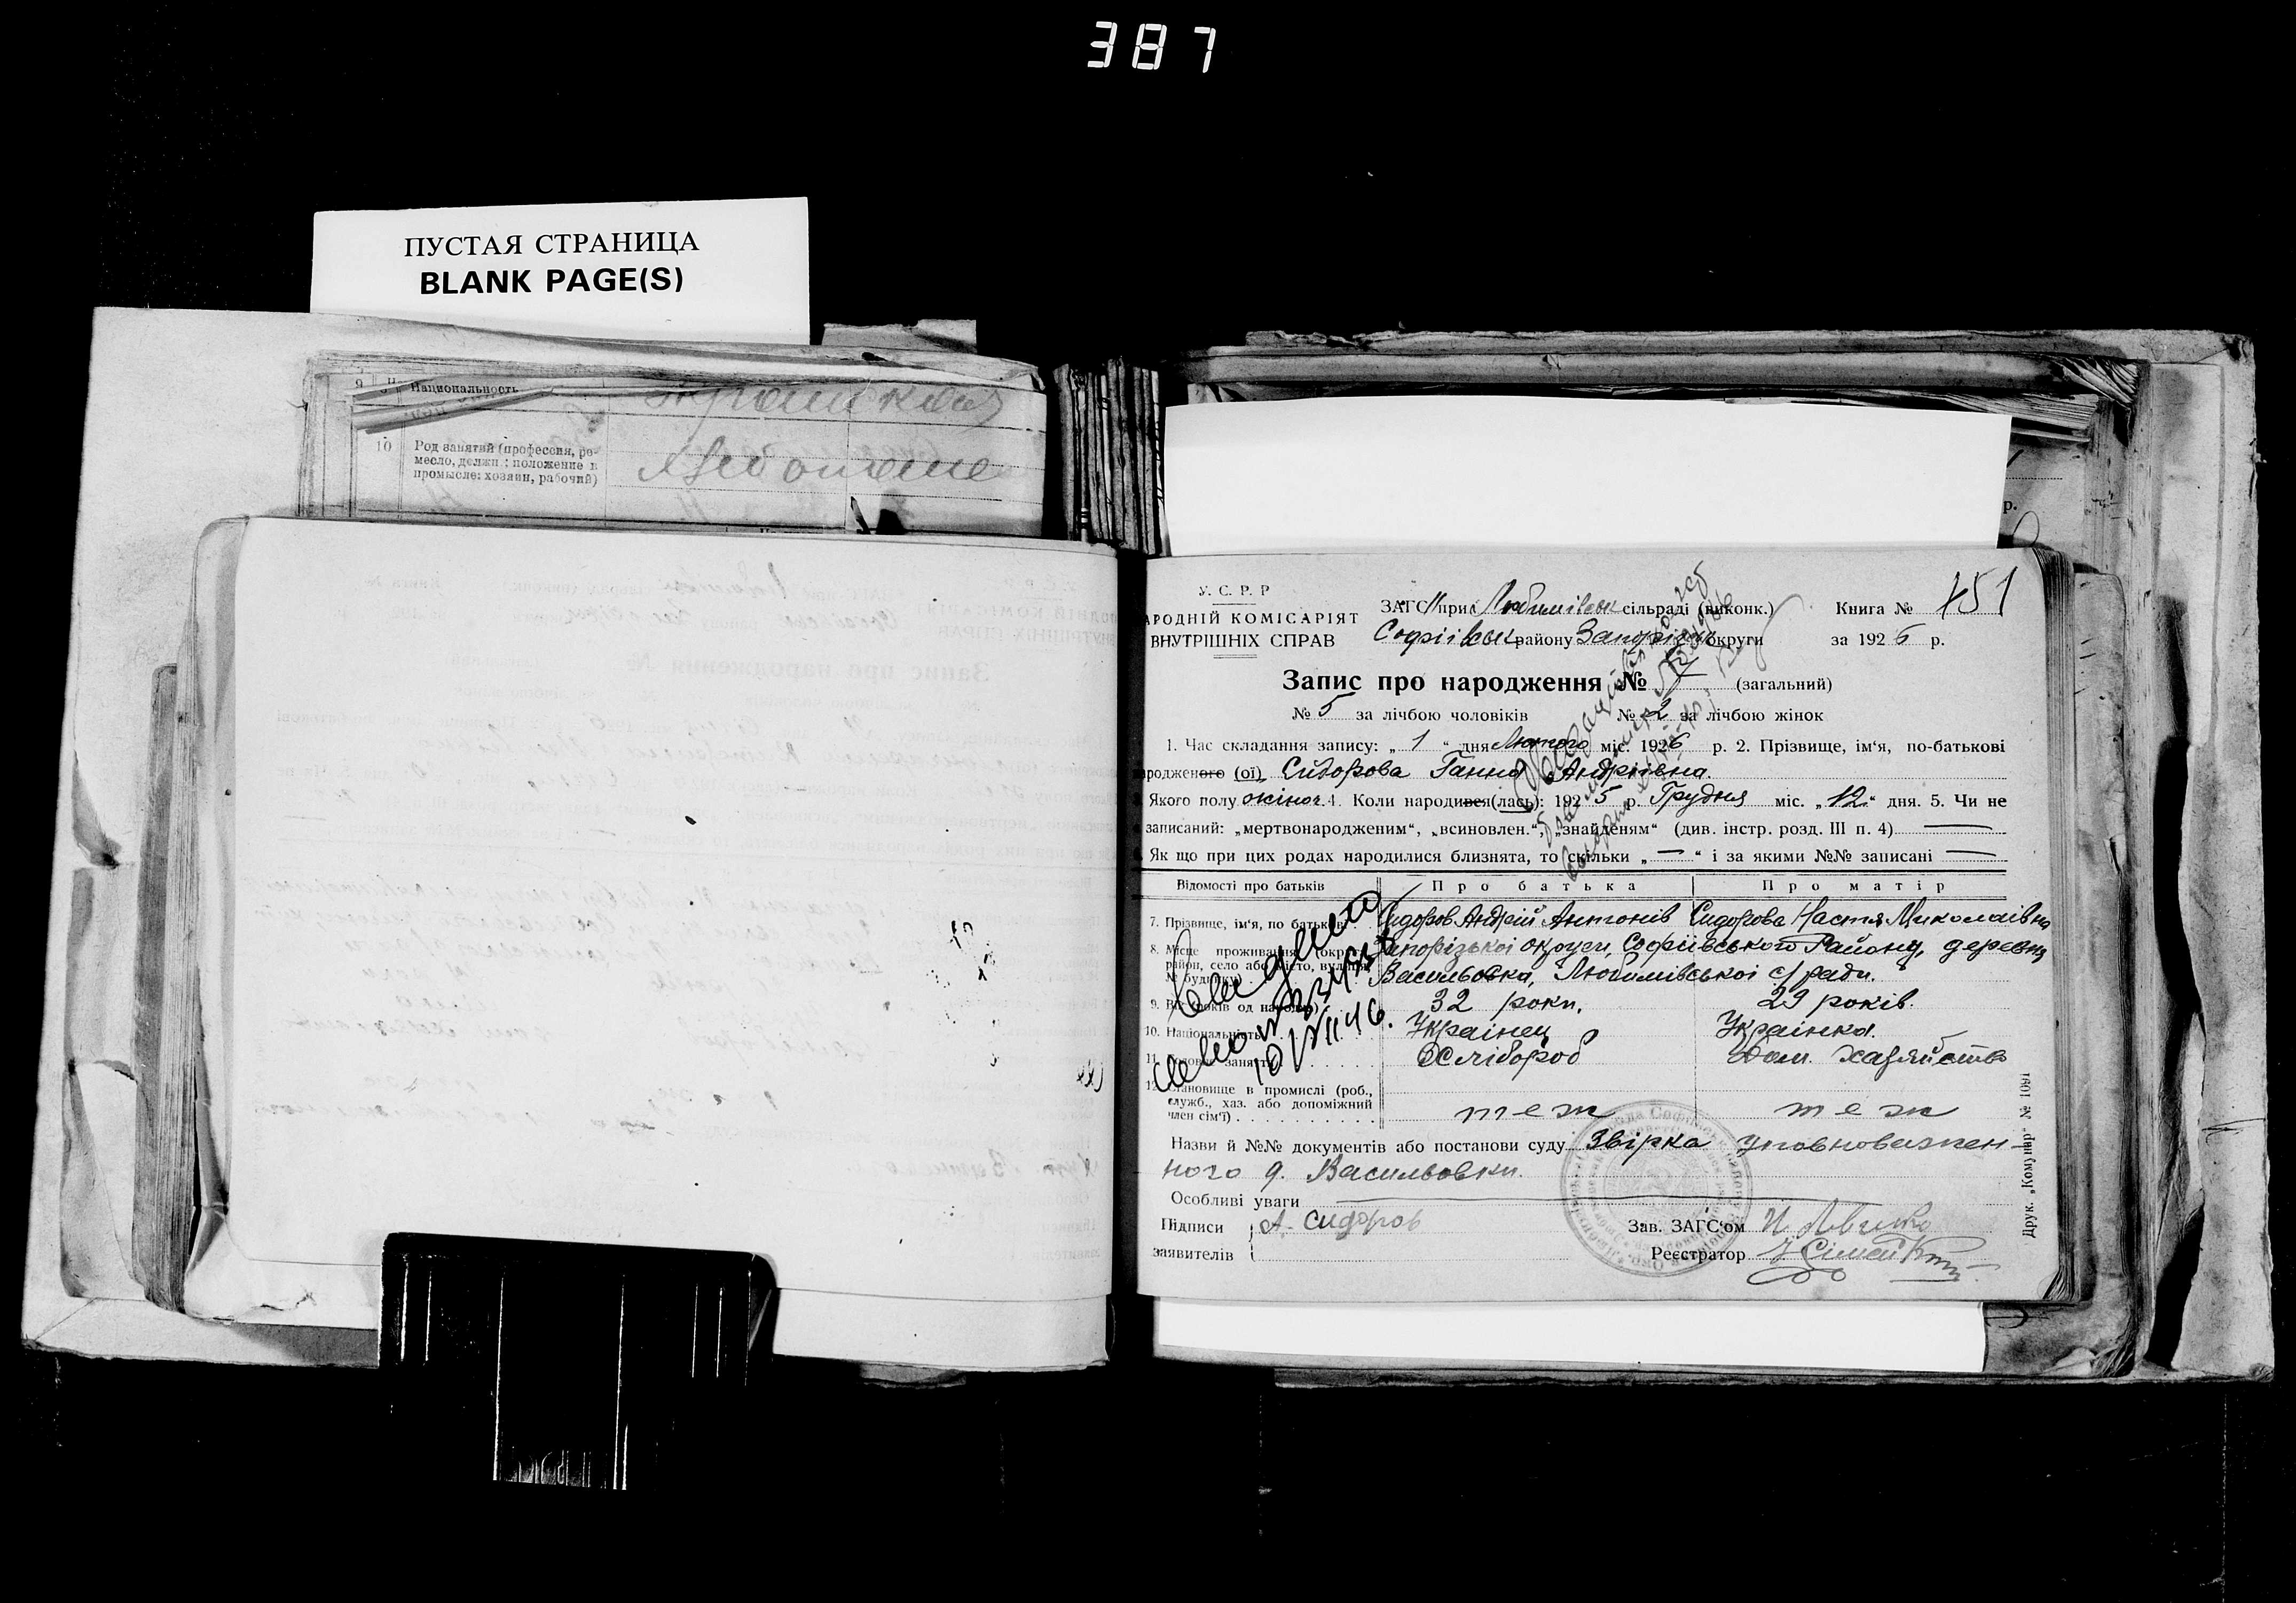 387
ПУСТАЯ СТРАНИЦА
BLANK PAGE(S)
9 Национальность
10 Род занятий (профессия, ре-
месло, должн.; положение в
промысле: хозяин, рабочий)
У. С. Р. Р
АРОДНІЙ КОМІСАРІЯТ
ВНУТРІШНІХ СПРАВ
ЗАГС при Любимівськ сільраді (виконк.)
Софіївськ району Запорізьк округи
Книга № 451
за 1926 р.
Запис про народження № 7 (загальний)
№ 5 за лічбою чоловіків № 2 за лічбою жінок
1. Час складання запису: „ 1 “ дня Лютого міс. 1926 р. 2. Прізвище, ім‘я, по-батькові
родженого (ої) Сидорова Ганна Андріївна.
Якого полу жіноч. 4. Коли народився(лась): 1925 р. Грудня міс. „12“ дня. 5. Чи не
записаний: „мертвонародженим“, „всиновлен.“, „знайденям“ (див. інстр. розд. III п. 4) —
Як що при цих родах народилися близнята, то скільки „ — “ і за якими №№ записані —
Відомості про батьків Про батька Про матір
7. Прізвище, ім‘я, по батьков. Сидоров Андрій Антонів Сидорова Настя Миколаївна
8. Місце проживання (округа, Запорізької округи, Софіївського Району, деревня
район, село або місто, вулиця,
№ будинку) Васильовка, Любимівської с/ради.
9. Вік (років од народ.) 32 роки. 29 років.
10. Національність Українец Українка.
11. Головне заняття Хлібороб Дом. хазяйство
12. Становище в промислі (роб.,
служб., хаз. або допоміжний
член сім‘ї) теж теж
Видано
10/VII 46.
Назви й №№ документів або постанови суду Звірка уповноважен-
ного д. Васильовки.
Особливі уваги
Підписи А. Сидоров Зав. ЗАГС‘ом
заявителів Реєстратор
Друк. „Комунар“ № 1091